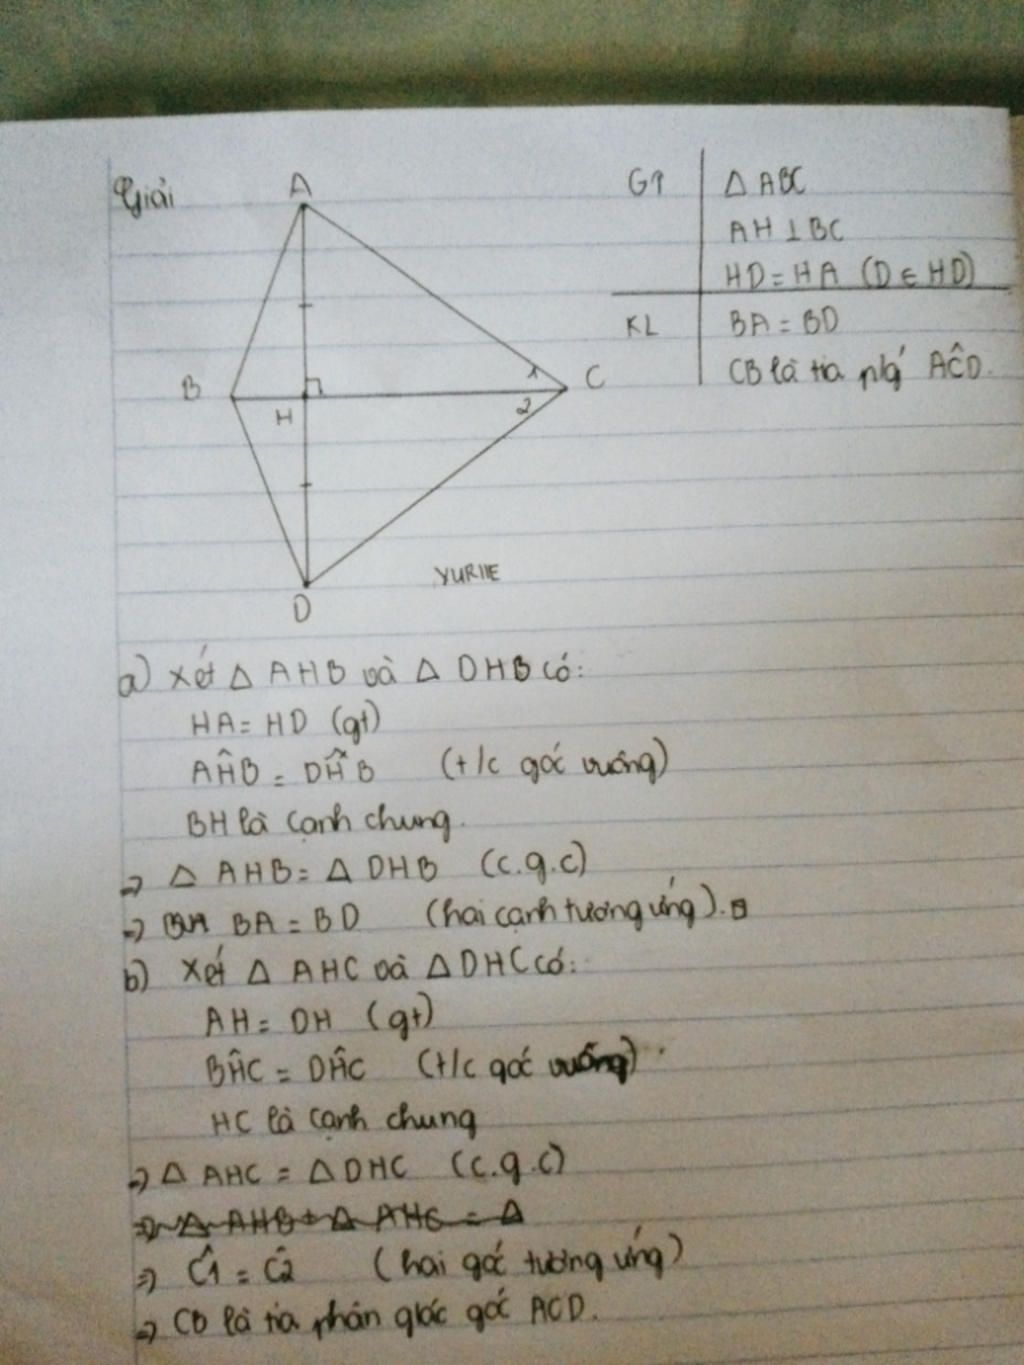 Giải
A
B
H
C
1
2
D
YURIIE
GT
△ ABC
AH ⊥ BC
HD = HA (D ∈ HD)
KL
BA = BD
CB là tia p/g AĈD.
a) Xét △ AHB và △ DHB có:
HA = HD (gt)
AĤB = DĤB (t/c góc vuông)
BH là cạnh chung.
=> △ AHB = △ DHB (c.g.c)
=> BA = BD (hai cạnh tương ứng).
b) Xét △ AHC và △ DHC có:
AH = DH (gt)
BĤC = DĤC (t/c góc vuông)
HC là cạnh chung
=> △ AHC = △ DHC (c.g.c)
=> △ AHB + △ AHC = △
=> Ĉ1 = Ĉ2 (hai góc tương ứng)
=> CB là tia phân giác góc ACD.